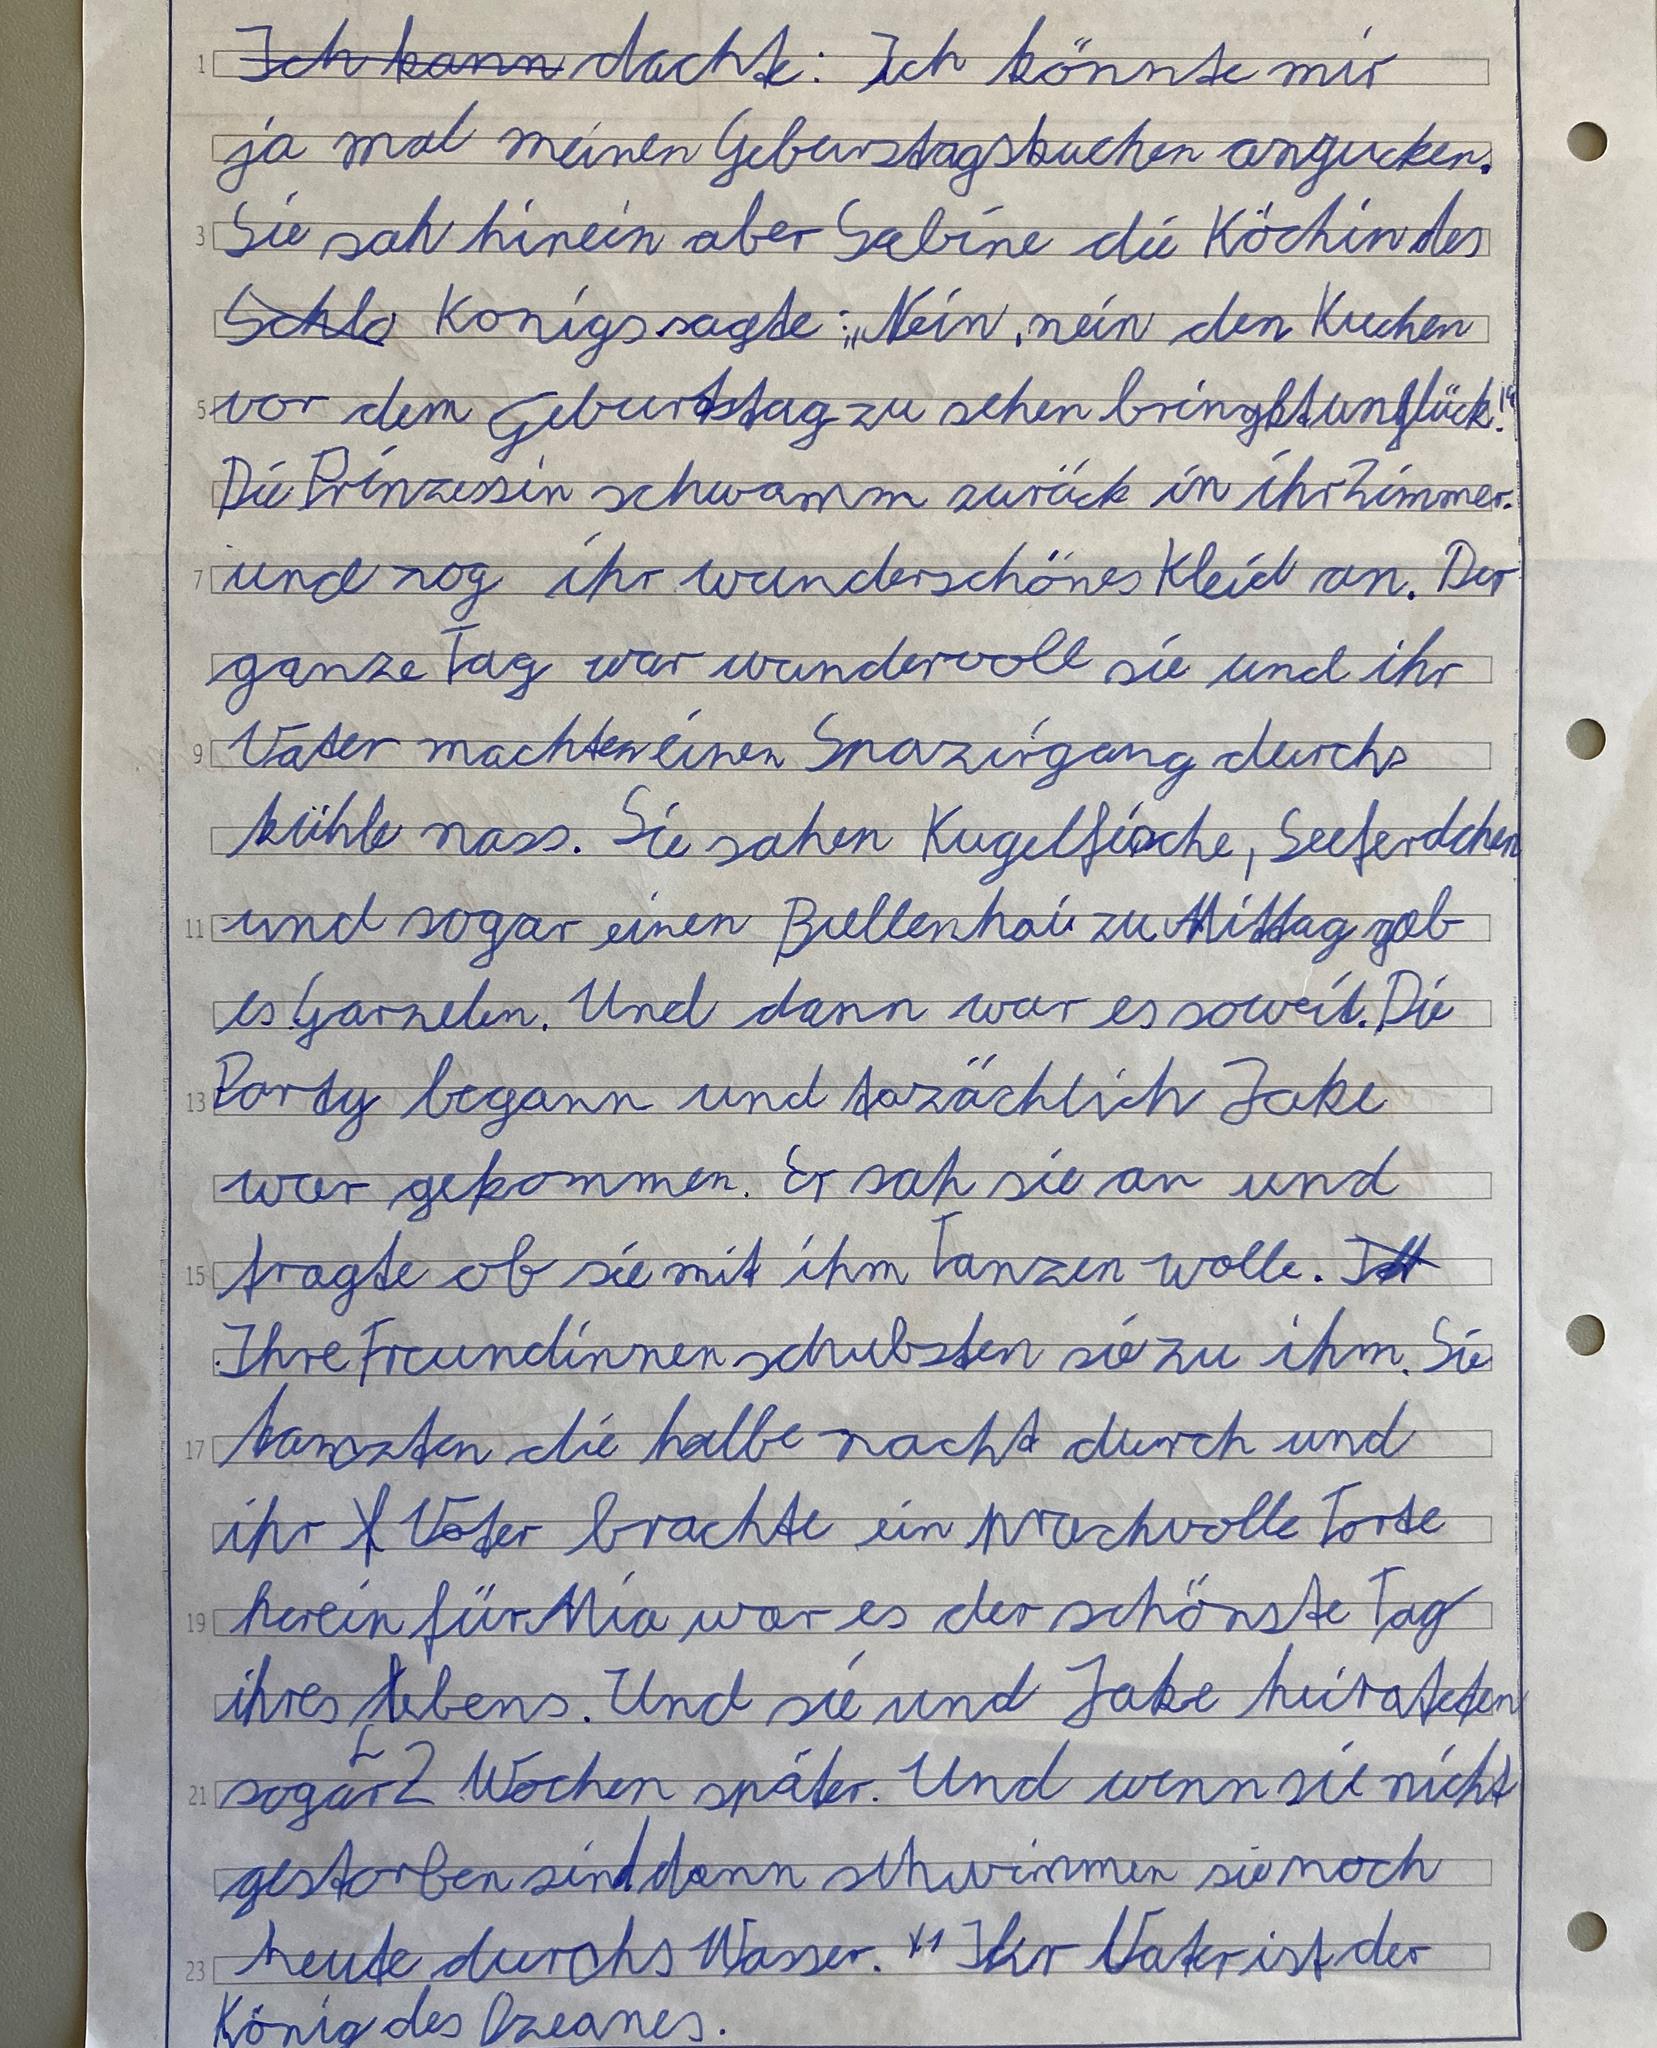 1 Ich kann dachte: Ich könnte mir
ja mal meinen Geburztagskuchen angucken.
3 Sie sah hinein aber Sabine die Köchin des
Schlo Königs sagte: „Nein, nein den Kuchen
5 vor dem Geburtstag zu sehen bringt unglück!"
Die Prinzessin schwamm zurück in ihr Zimmer.
7 und zog ihr wunderschönes Kleid an. Der
ganze Tag war wundervoll sie und ihr
9 Vater machten einen Spazirgang durchs
kühle nass. Sie sahen Kugelfische, Seeferdchen
11 und sogar einen Bullenhai zu Mittag gab
es Garnelen. Und dann war es soweit. Die
13 Party begann und tazächlich Jake
war gekommen. Er sah sie an und
15 fragte ob sie mit ihm Tanzen wolle.
Ihre Freundinnen schubsten sie zu ihm. Sie
17 tanzten die halbe nacht durch und
ihr Vater brachte ein prachvolle Torte
19 herein für Mia war es der schönste Tag
ihres Lebens. Und sie und Jake heirateten
21 sogar 2 Wochen später. Und wenn sie nicht
gestorben sind dann schwimmen sie noch
23 heute durchs Wasser. *1 Ihr Vater ist der
König des Ozeanes.